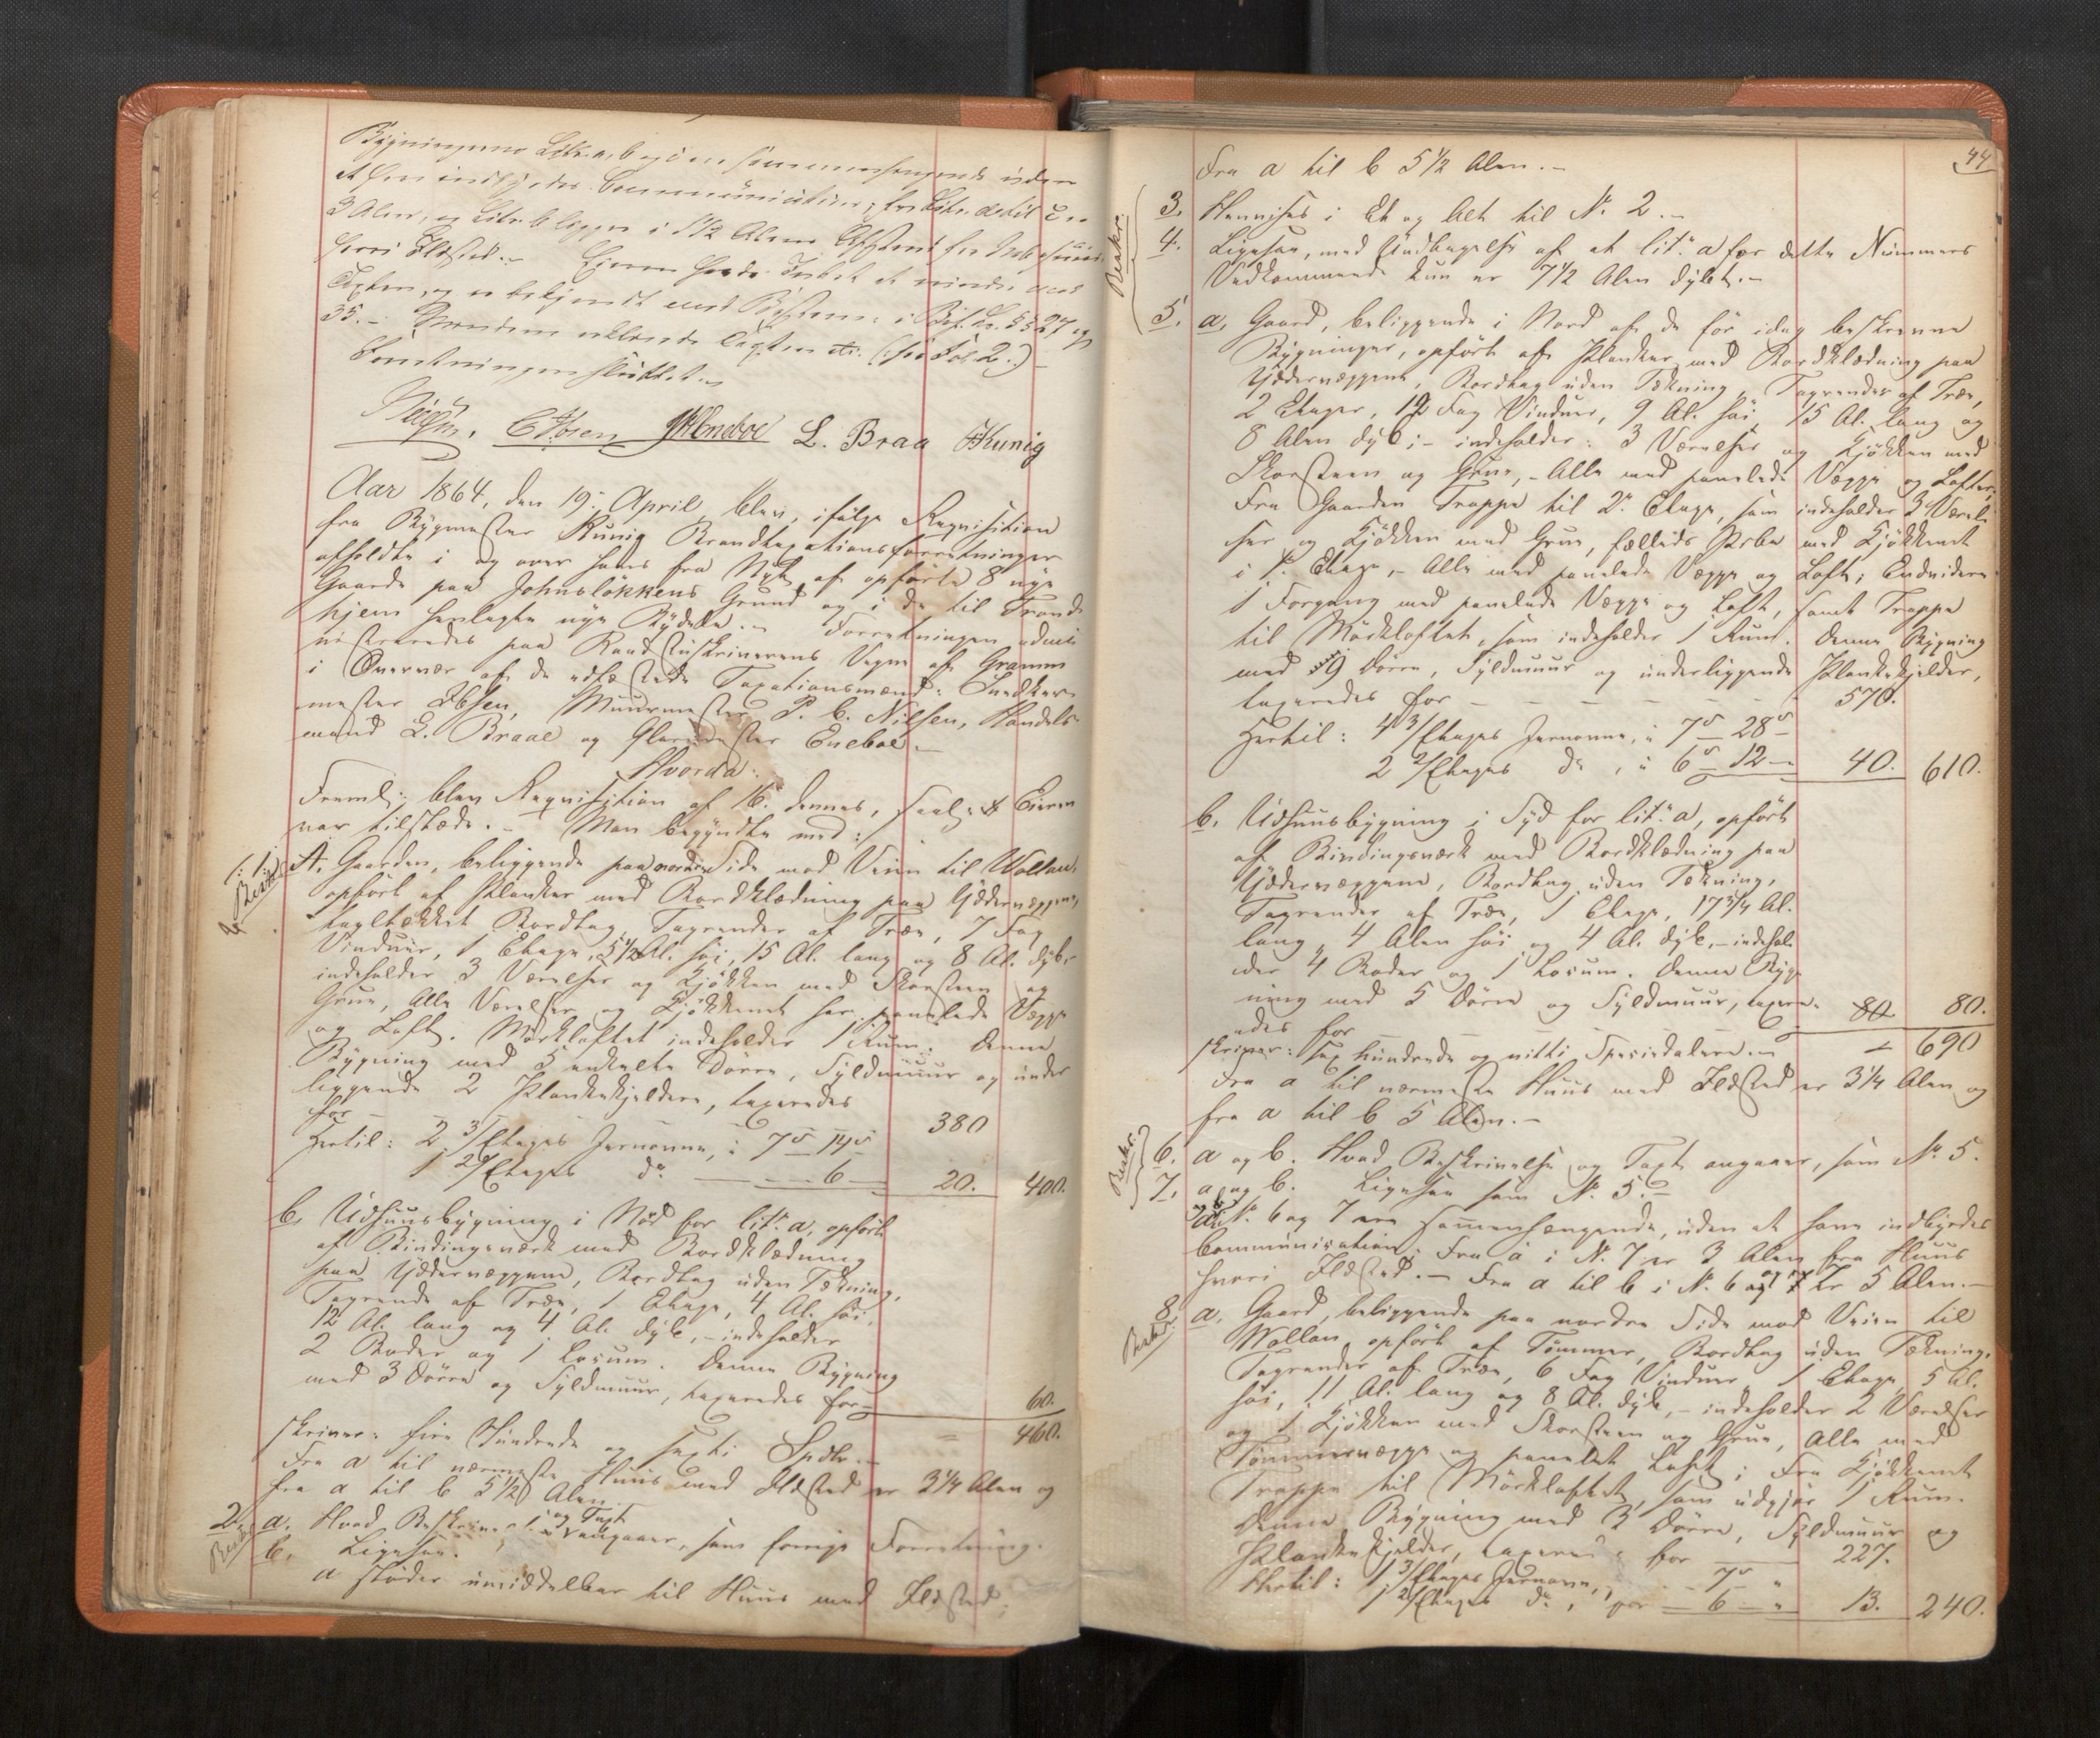 Bygningerne Litr. a, b og c ere sammenhængende uden
at have indbyrdes Communication; fra Litr. a til c er
3 Alen, og Litr. b ligger i 1 1/2 Alens Afstand fra
hvori Ildsted.- Eieren havde Intet at erindre mod
Taxten, og er bekjendt med Bestem: i Brf. Lov §§ 27 og
35.- Mændene erklærede Taxten etc. (see Fol 2.)
Forretningen sluttet.
Nielsen. C Ibsen Eneboe L. Braa Kunig
Aar 1864, den 19. April, blev, ifølge Requisition
fra Bygmester Kunig Brandtaxationsforretninger
afholdte i og over hans fra Nyt af opførte 8 nye
Gaarde paa Johnsløkkens Grund og i de til Trond-
hjem henlagte nye Bydele.- Forretningen admi-
nistreredes paa Raadstuskriverens Vegne af Gramm
i Overvær af de edfæstede Taxationsmænd: Snedker-
mester Ibsen, Muurmester P. C. Nilsen, Handels-
mand L. Braae og Glarmester Eneboe.-
Hvorda:
Freml: blev Requisition af 16. dennes, saalydt Eieren
var tilstæde.- Man begyndte med:
1. Beskr. A. Gaarden, beliggende paa nordre Side mod Veien til Wollan,
opført af Planker med Bordklædning paa Ydervæggene,
tagltækket Bordtag, Tagrender af Træe, 7 Fag
Vinduer, 1 Etage, 5 1/2 Al. høi, 15 Al. lang og 8 Al. dyb,
indeholder 3 Værelser og Kjøkken med Skorsteen og
Grue, Alle Værelser og Kjøkkenet har panelede Vægge
og Loft. Mørkloftet indeholder 1 Rum. Denne
Bygning med 5 enkelte Dørre, Syldmuur og under-
liggende 2 Plankekjeldere, taxeredes
for - - - - - 380
Hertil: 2 3/Etages Jernovne, à 7 - 14
1 2/Etages do - - - 6 - 20. 400.
b. Udhuusbygning i Nord for litr. a, opført
af Bindingsværk med Bordklædning
paa Ydervæggene, Bordtag uden Tækning,
Tagrende af Træe, 1 Etage, 4 Al. høi,
12 Al. lang og 4 Al. dyb, - indeholder
2 Boder og 1 Locum. Denne Bygning
med 3 Dørre og Syldmuur, taxeredes for - 60.
skriver: fire Hundrede og sexti Spdlr.- = 460.
Fra a til nærmeste Huus med Ildsted er 3 1/4 Alen og
fra a til b 5 1/2 Alen.
2. Beskr. a. Hvad Beskrivelse og Taxt angaaer, som forrige Forretning.
b. Ligesaa.
a støder umiddelbar til Huus med Ildsted;
44
Fra a til b 5 1/2 Alen.-
Beskr. 3. Henvises i Et og Alt til No. 2.-
4. Ligesaa, med Undtagelse af at litr. a for dette Nummers
Vedkommende kun er 7 1/2 Alen dybt.-
5. a. Gaard, beliggende i Nord af de før idag beskrevne
Bygninger, opført af Planker med Bordklædning paa
Ydervæggene, Bordtag uden Tækning, Tagrender af Træe,
2 Etager, 12 Fag Vinduer, 9 Al. høi, 15 Al. lang og
8 Alen dyb; - indeholder: 3 Værelser og Kjøkken med
Skorsteen og Grue, - Alle med panelede Vægge og Lofter,
Fra Gaarden Trappe til 2. Etage, som indeholder 3 Værel-
ser og Kjøkken med Grue, fælleds Pibe med Kjøkkenet
i 1. Etage, - Alle med panelede Vægge og Loft; Endvidere
1 Forgang med panelede Vægge og Loft, samt Trappe
til Mørkloftet, som indeholder 1 Rum. Denne Bygning
med 9 Dørre, Syldmuur og underliggende Plankekjelder,
taxeredes for - - - - - - 570.
Hertil: 4 3/Etages Jernovne, à 7 - 28 -
2 2/Etages do, à 6 - 12 - 40. 610.
b. Udhuusbygning i Syd for litr. a, opført
af Bindingsværk med Bordklædning paa
Ydervæggene, Bordtag uden Tækning,
Tagrender af Træe, 1 Etage, 17 3/4 Al.
lang, 4 Alen høi og 4 Al. dyb, - indehol-
der 4 Boder og 1 Locum. Denne Byg-
ning med 5 Dørre og Syldmuur, taxere- 80 80.
redes for
skriver: Sex hundrede og nitti Speciedalere.- = 690
Fra a til nærmeste Huus med Ildsted er 3 1/4 Alen og
fra a til b 5 Alen.-
Beskr. 6. a og b. Hvad Beskrivelse og Taxt angaaer, som No. 5.
7. a og b. Ligesaa som No. 5.-
No. 6 og 7 ere sammenhængende, uden at have indbyrdes
Communication; Fra a i No. 7 er 3 Alen fra Huus
hvori Ildsted.- Fra a til b i No. 6 og 7 er 5 Alen.-
8. Beskr. a. Gaard, beliggende paa nordre Side mod Veien til
Wollan, opført af Tømmer, Bordtag uden Tækning,
Tagrender af Træe, 6 Fag Vinduer, 1 Etage, 5 Al.
høi, 11 Al. lang og 8 Al. dyb, - indeholder 2 Værelser
og 1 Kjøkken med Skorsteen og Grue, Alle med
Tømmervægge og panelet Loft; Fra Kjøkkenet
Trappe til Mørkloftet, som udgjør 1 Rum.
Denne Bygning med 3 Dørre, Syldmuur og
Plankekjelder, taxeredes for - 227.
Hertil: 1 3/Etages Jernovn, - 7 - "
1 2/Etages do, for - 6 - " 13. 240.